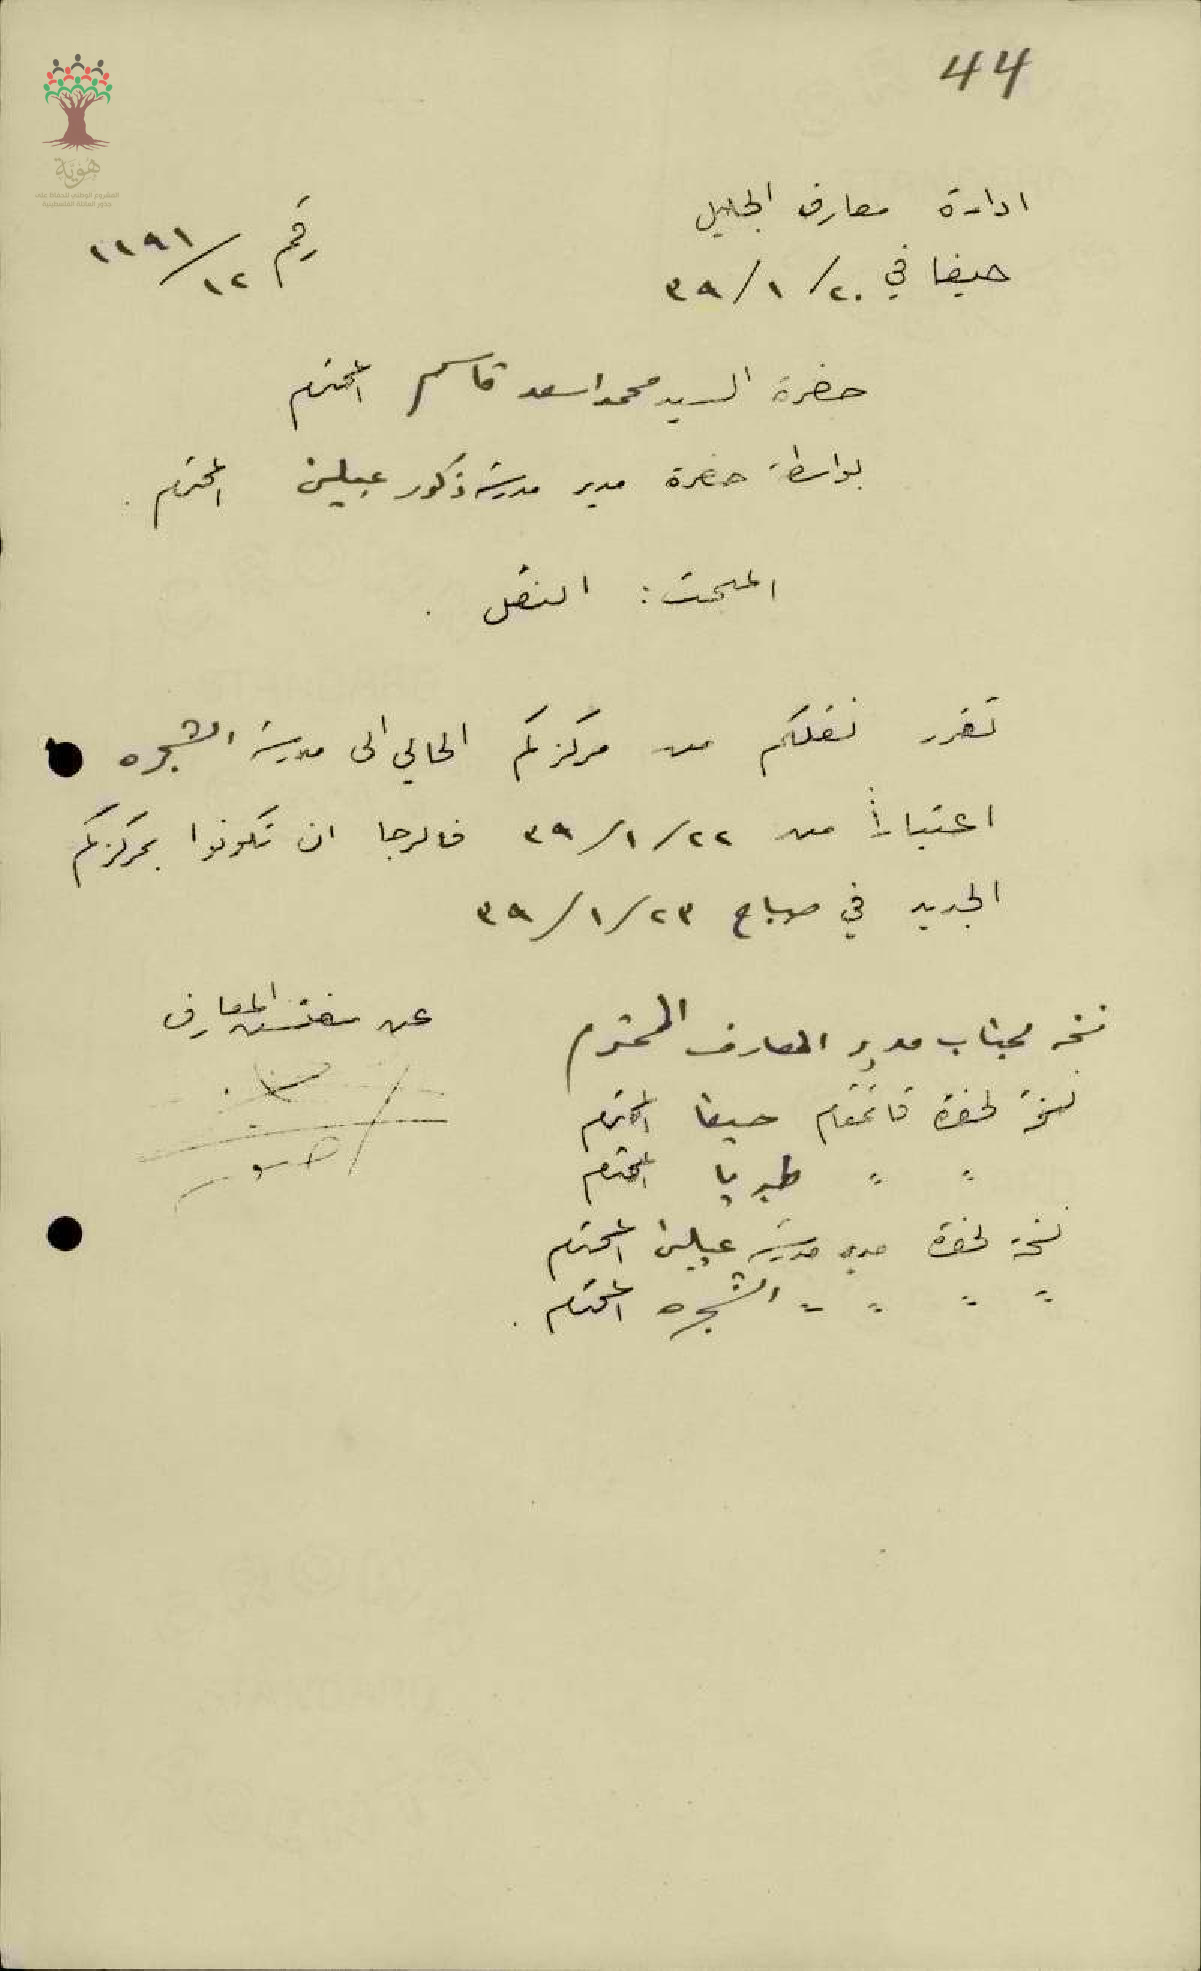 44
هوية
المشروع الوطني للحفاظ على
جذور العائلة الفلسطينية
ادارة معارف الجليل
رقم ١١٩١/١٢
حيفا في ٢٠/١/٣٩
حضرة السيد محمد اسعد قاسم المحترم
بواسطة حضرة مدير مدرسة ذكور عبلين المحترم .
المبحث : النقل .
تقرر نقلكم من مركزكم الحالي الى مدرسة الشجره
اعتباراً من ٢٢/١/٣٩ فالرجا ان تكونوا بمركزكم
الجديد في صباح ٢٣/١/٣٩
عن مفتش المعارف
نسخه لجناب مدير المعارف المحترم
نسخة لحضرة قائمقام حيفا المحترم
" " طبريا المحترم
نسخة لحضرة مدير مدرسة عبلين المحترم
" " " " الشجره المحترم .